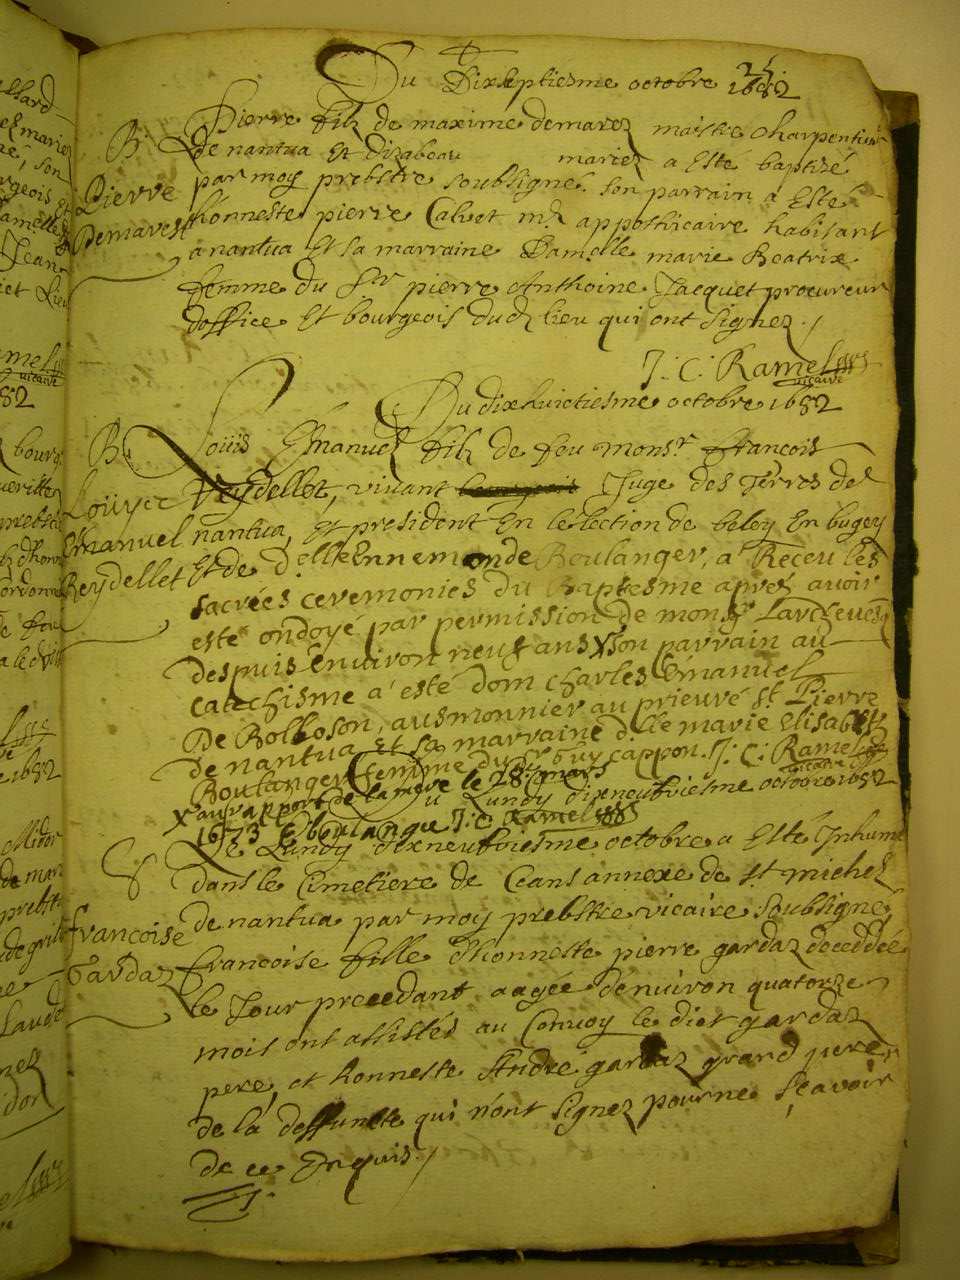 Du Dixseptiesme octobre 1682
B
Pierre
Demarest
Pierre filz de maxime demarez maistre charpentier
de nantua Et dizabeau mariez a Esté baptizé
par moy prebstre soubsigné. son parrain a Esté
honneste pierre Calvet mr appothicaire habitant
a nantua Et sa marraine Damelle marie Beatrix
femme du Sr pierre Anthoine Jacquet procureur
doffice Et bourgeois dud lieu qui ont signez ./
J. C. Ramel
vicaire
Du dixhuictiesme octobre 1682
B
Louys
Emanuel
Reydellet
Louis Emanuel filz de feu Monsr francois
Reydellet, vivant Juge des Terres de
nantua, Et president En lelection de beley En bugey
Et de delle Ennemonde Boulanger, a Receu les
sacrées ceremonies du Baptesme aprez avoir
esté ondoyé par permission de monsr Larchevesq
despuis environ neuf ans X son parrain au
catechisme a esté dom charles Emanuel
De Bolloson, ausmonnier au prieuré st. Pierre
de nantua Et sa marraine dlle marie Elisabeth
Boulanger femme du sr Guy cappon. J. C. Ramel
vicaire
X au rapport de la mere le 28 mars
1673 E boulangue J. C. Ramel
Du Lundy dixneufviesme octobre 1682
S
francoise
Gardaz
Le Lundy dixneufviesme octobre a Esté Inhumé
dans le Cimetiere de Ceans annexe de st michel
de nantua par moy prebstre vicaire soubsigné
francoise fille dhonneste pierre gardaz decedée
le Jour precedant aagée denviron quatorze
mois ont assistés au Convoy le dict gardaz
pere, et honneste André gardaz grand pere
de la deffuncte qui n'ont signez pour ne sçavoir
de ce Enquis ./